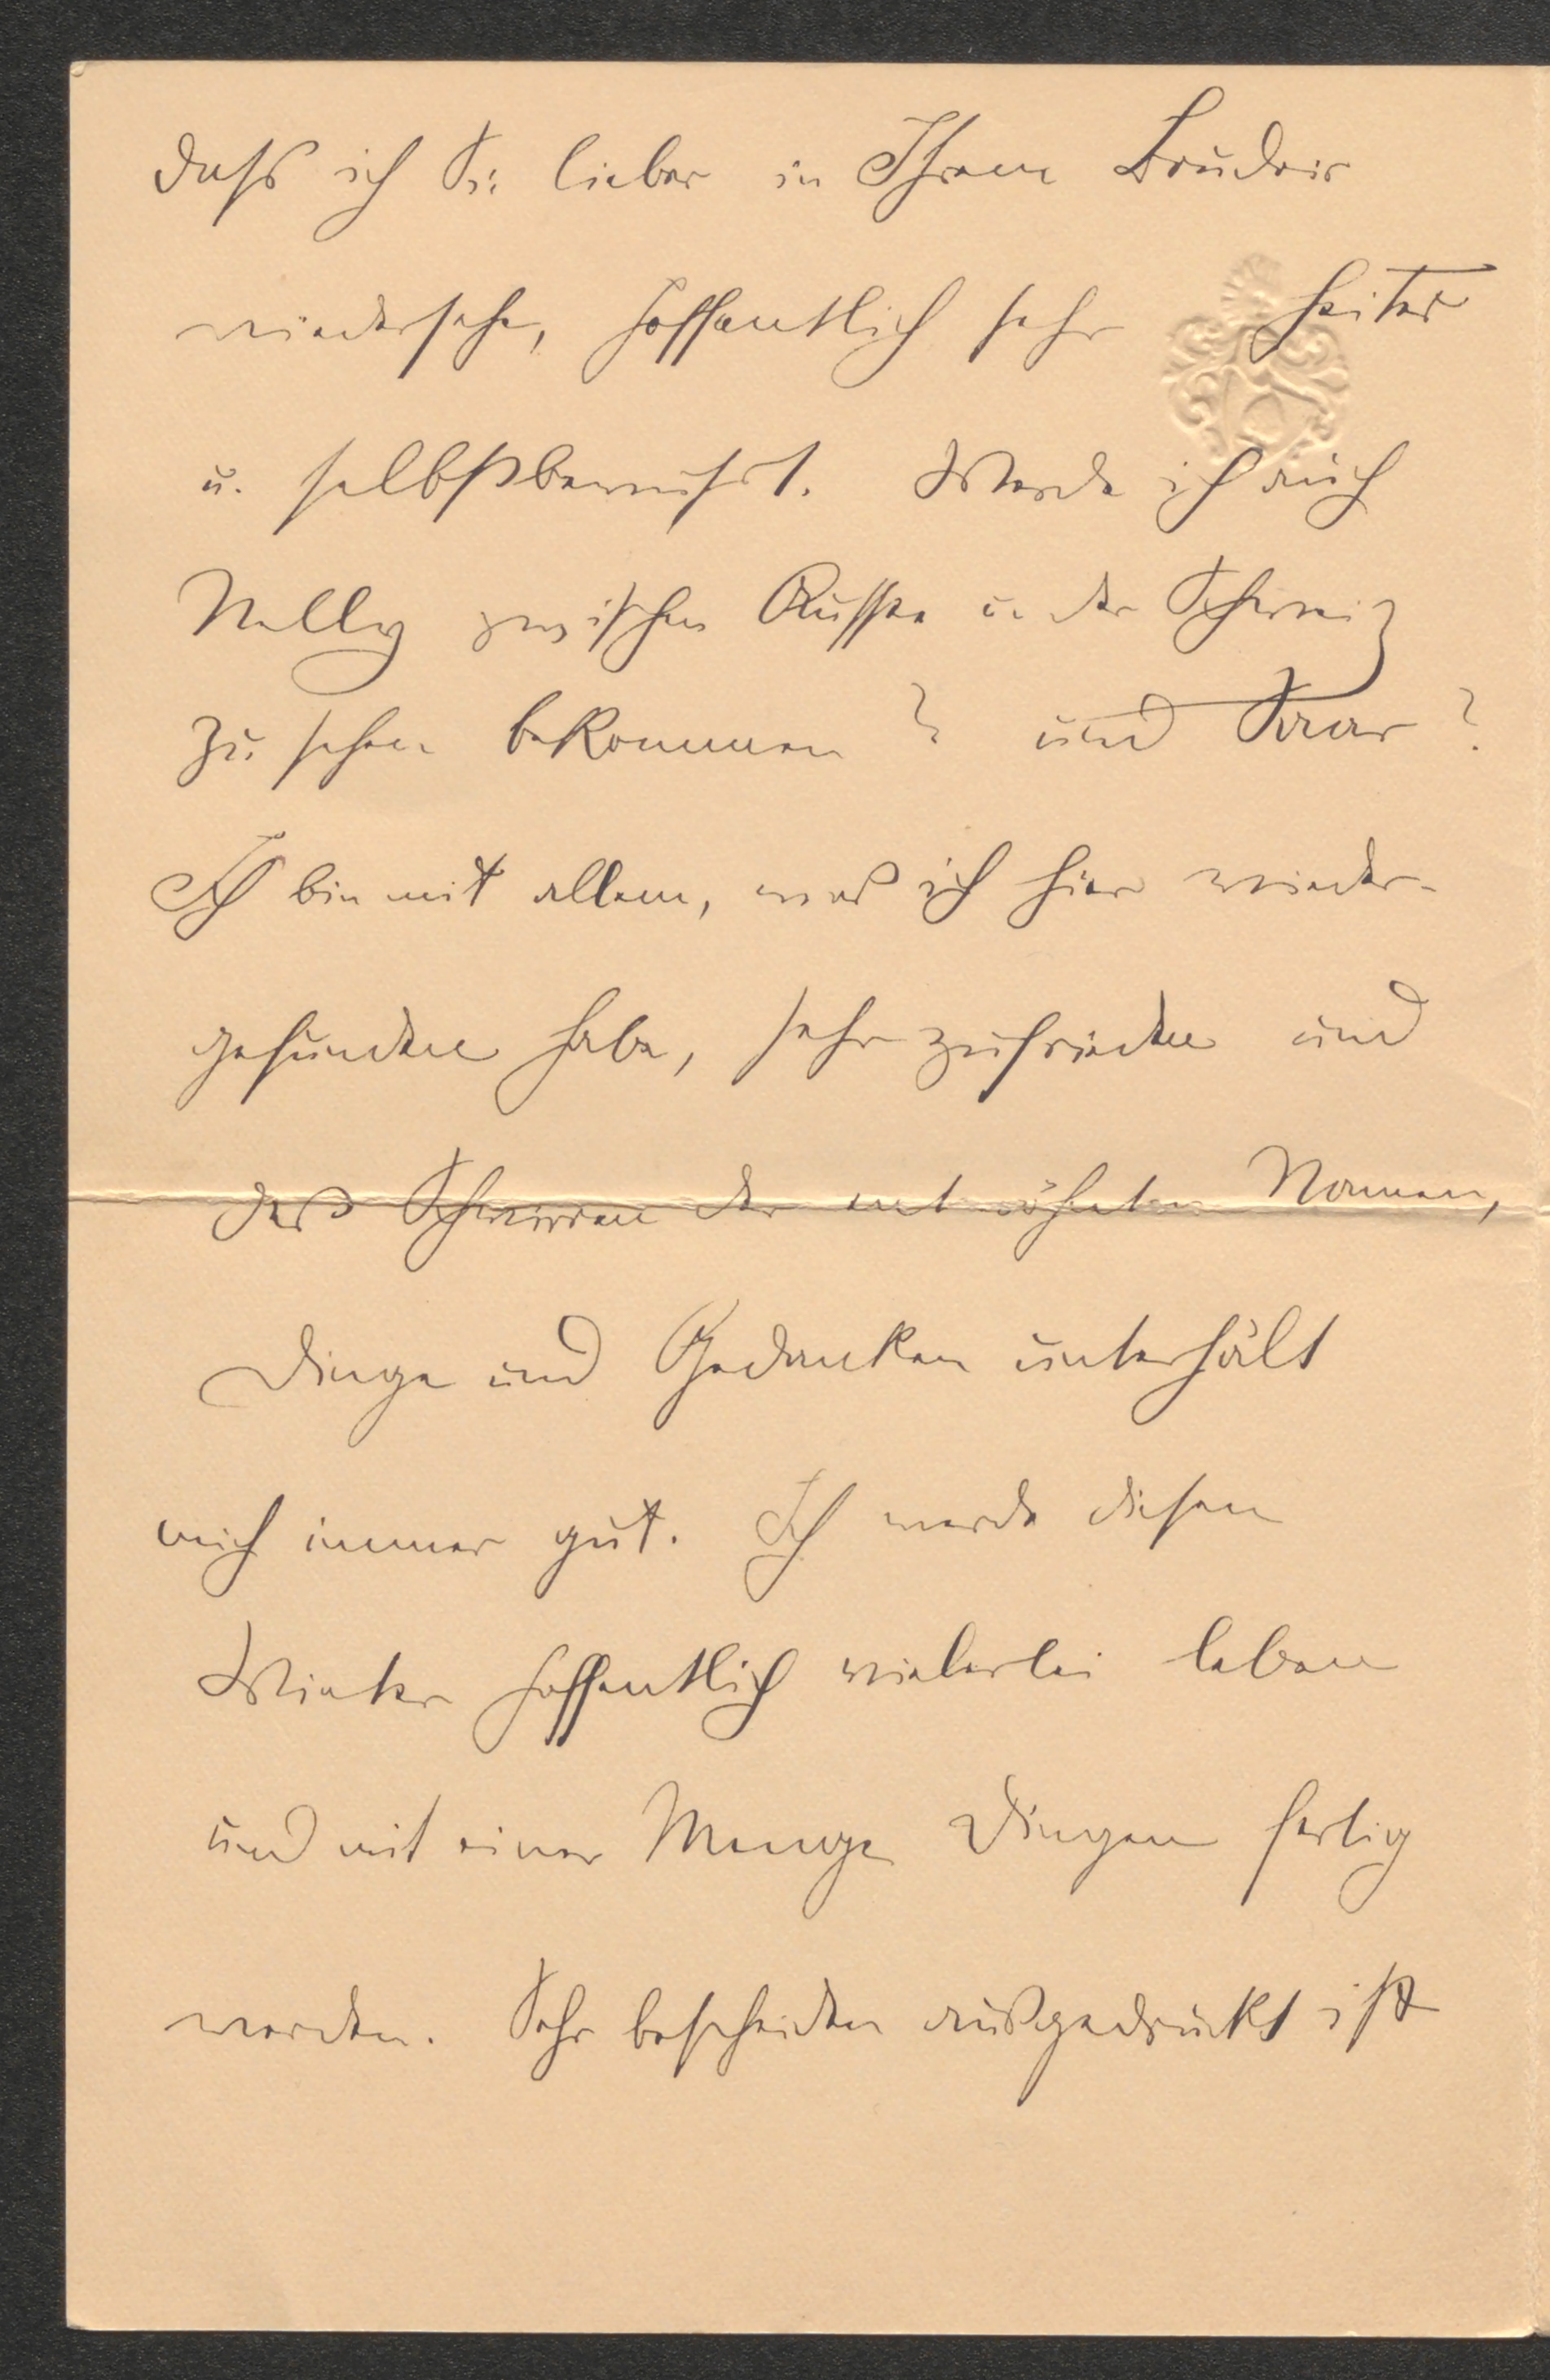 daſs ich Sie lieber in Ihrem Boudoir
wiedersehe, hoffentlich sehr heiter
u. selbstbewusst. Werde ich auch
Nelly zwischen Aussee u. der Schweiz
zu sehen bekommen? und Saar?
Ich bin mit allem, was ich hier wieder-
gefunden habe, sehr zufrieden und
das Schwirren der entwöhnten Namen,
Dinge und Gedanken unterhält
mich immer gut. Ich werde diesen
Winter hoffentlich vielerlei leben
und mit einer Menge Dingen fertig
werden. Sehr bescheiden ausgedrückt ist